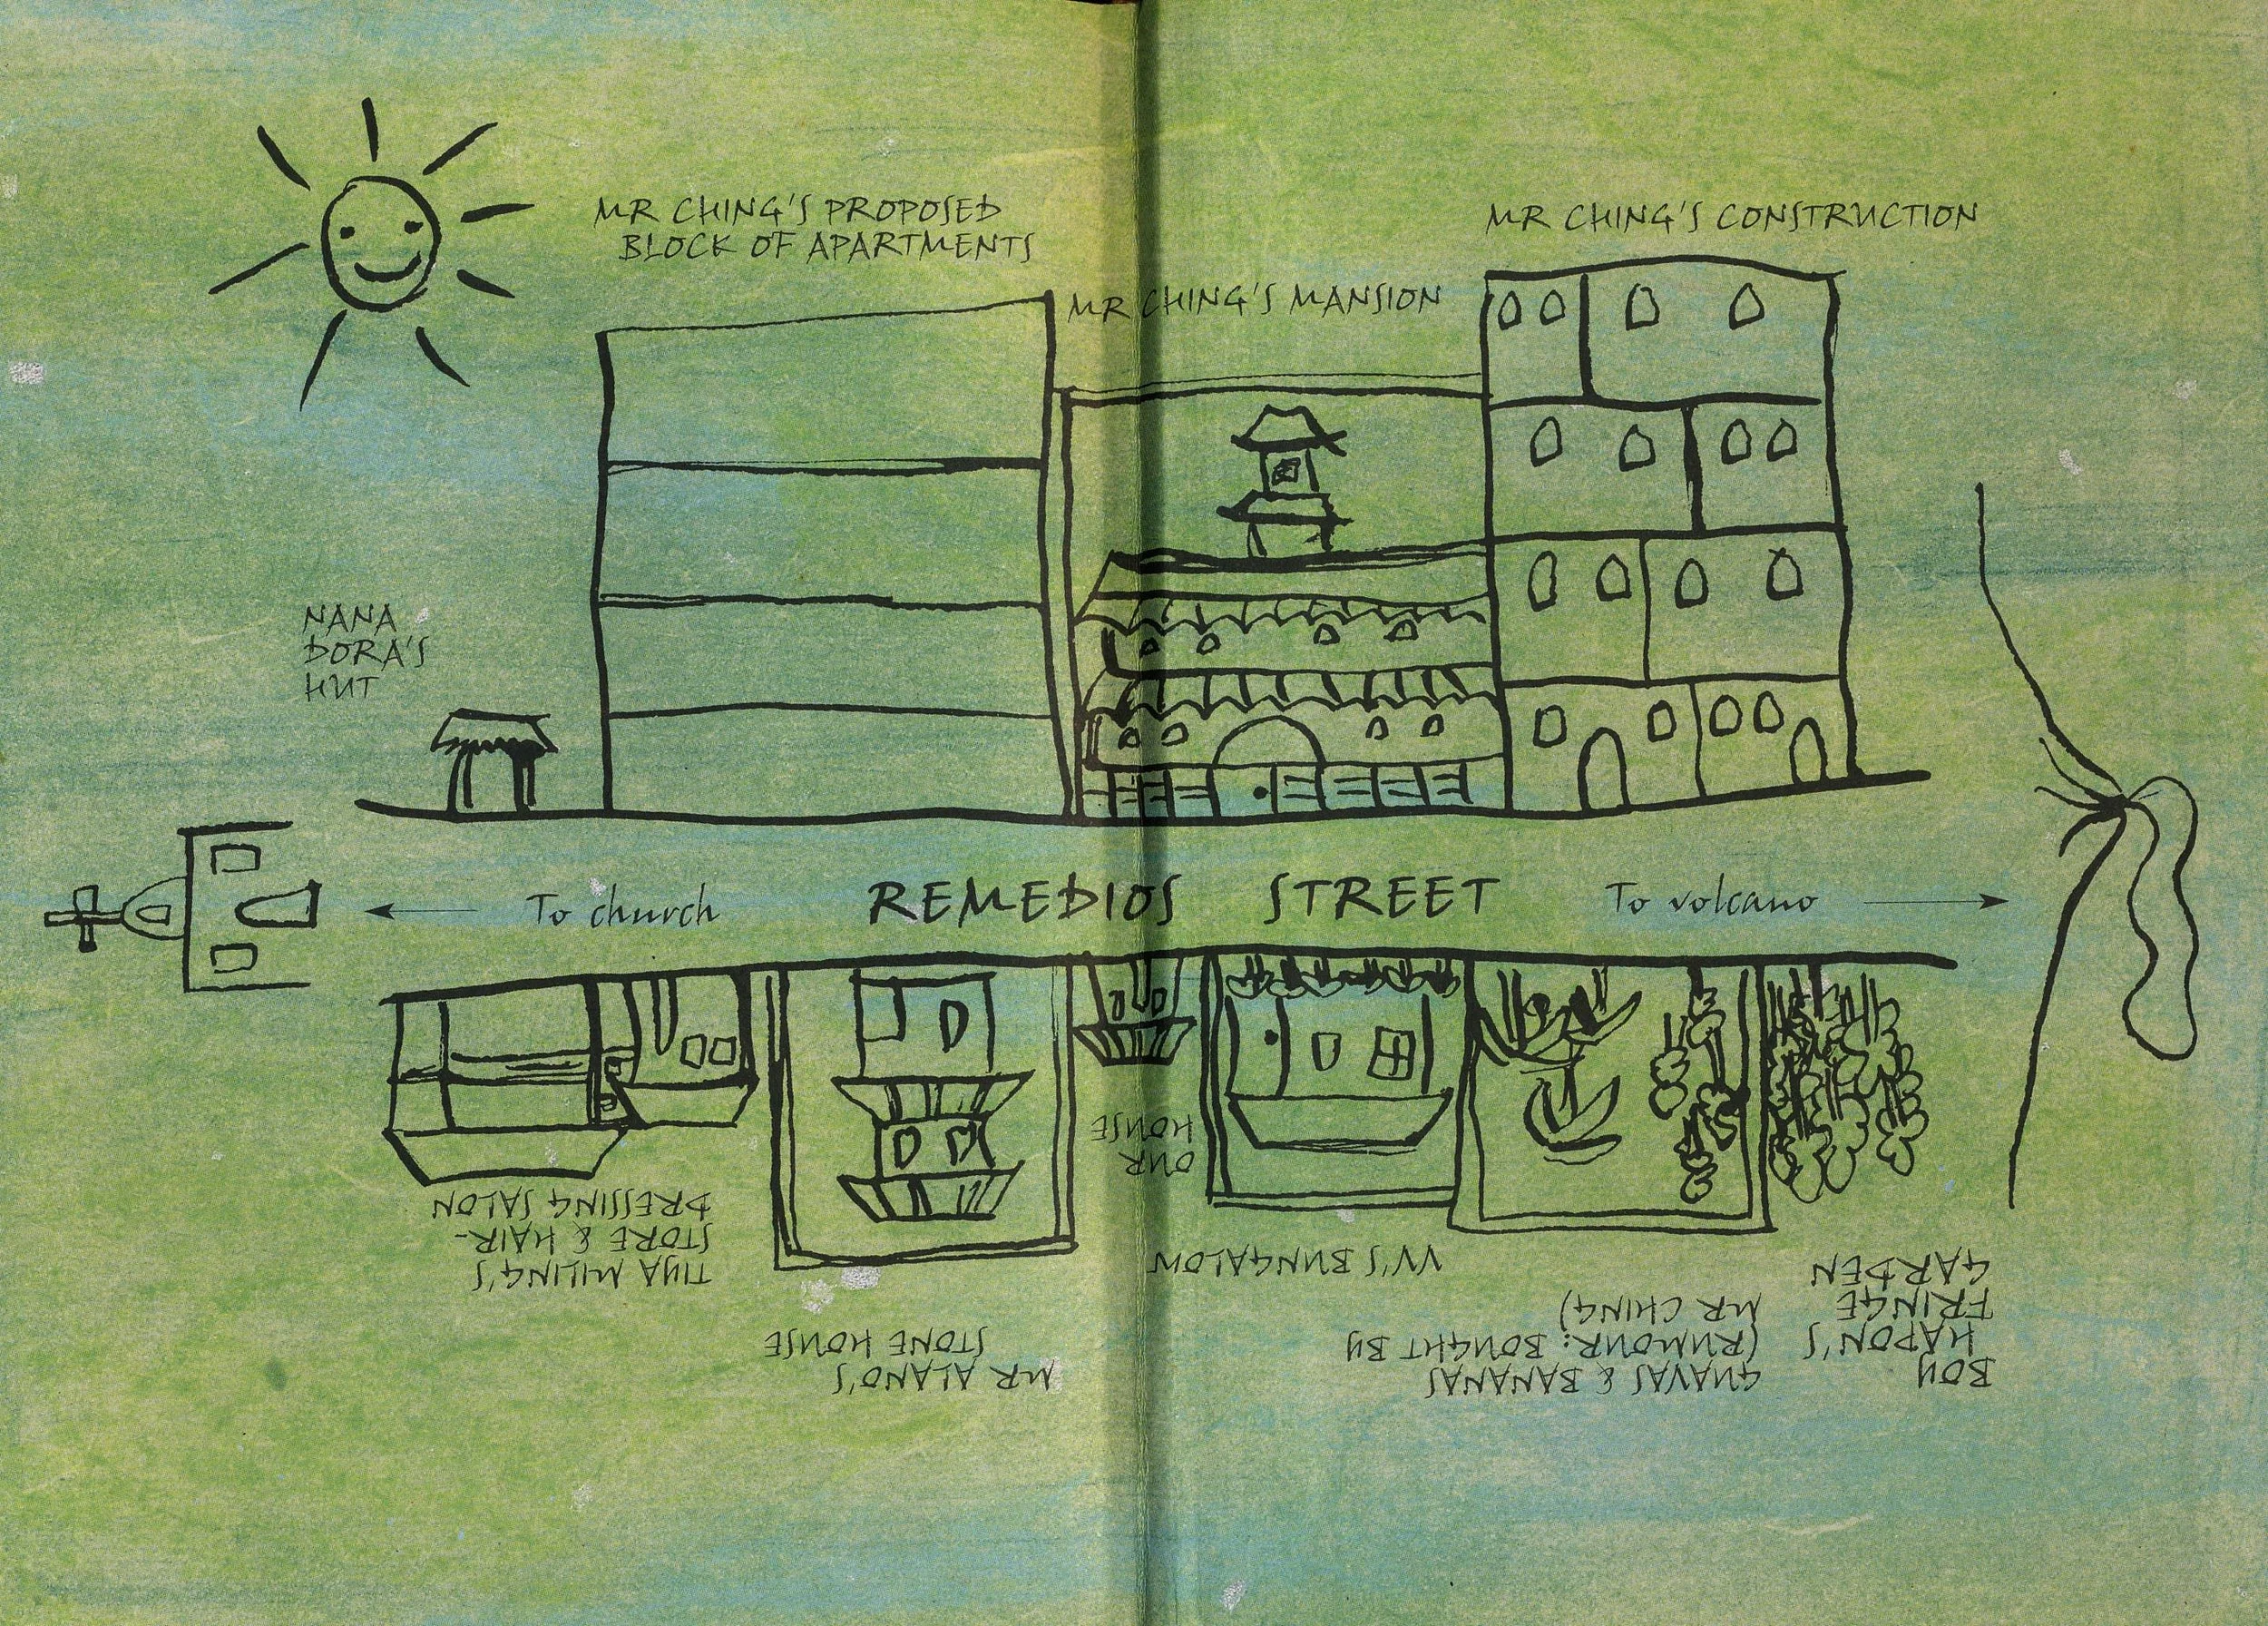 MR CHING'S PROPOSED
BLOCK OF APARTMENTS
MR CHING'S MANSION
MR CHING'S CONSTRUCTION
NANA
DORA'S
HUT
To church
REMEDIOS STREET
To volcano
BOY
HAPON'S
FRINGE
GARDEN
GUAVAS & BANANAS
(RUMOUR: BOUGHT BY
MR CHING)
VV'S BUNGALOW
OUR
HOUSE
MR ALANO'S
STONE HOUSE
TIYA MILING'S
STORE & HAIR-
DRESSING SALON